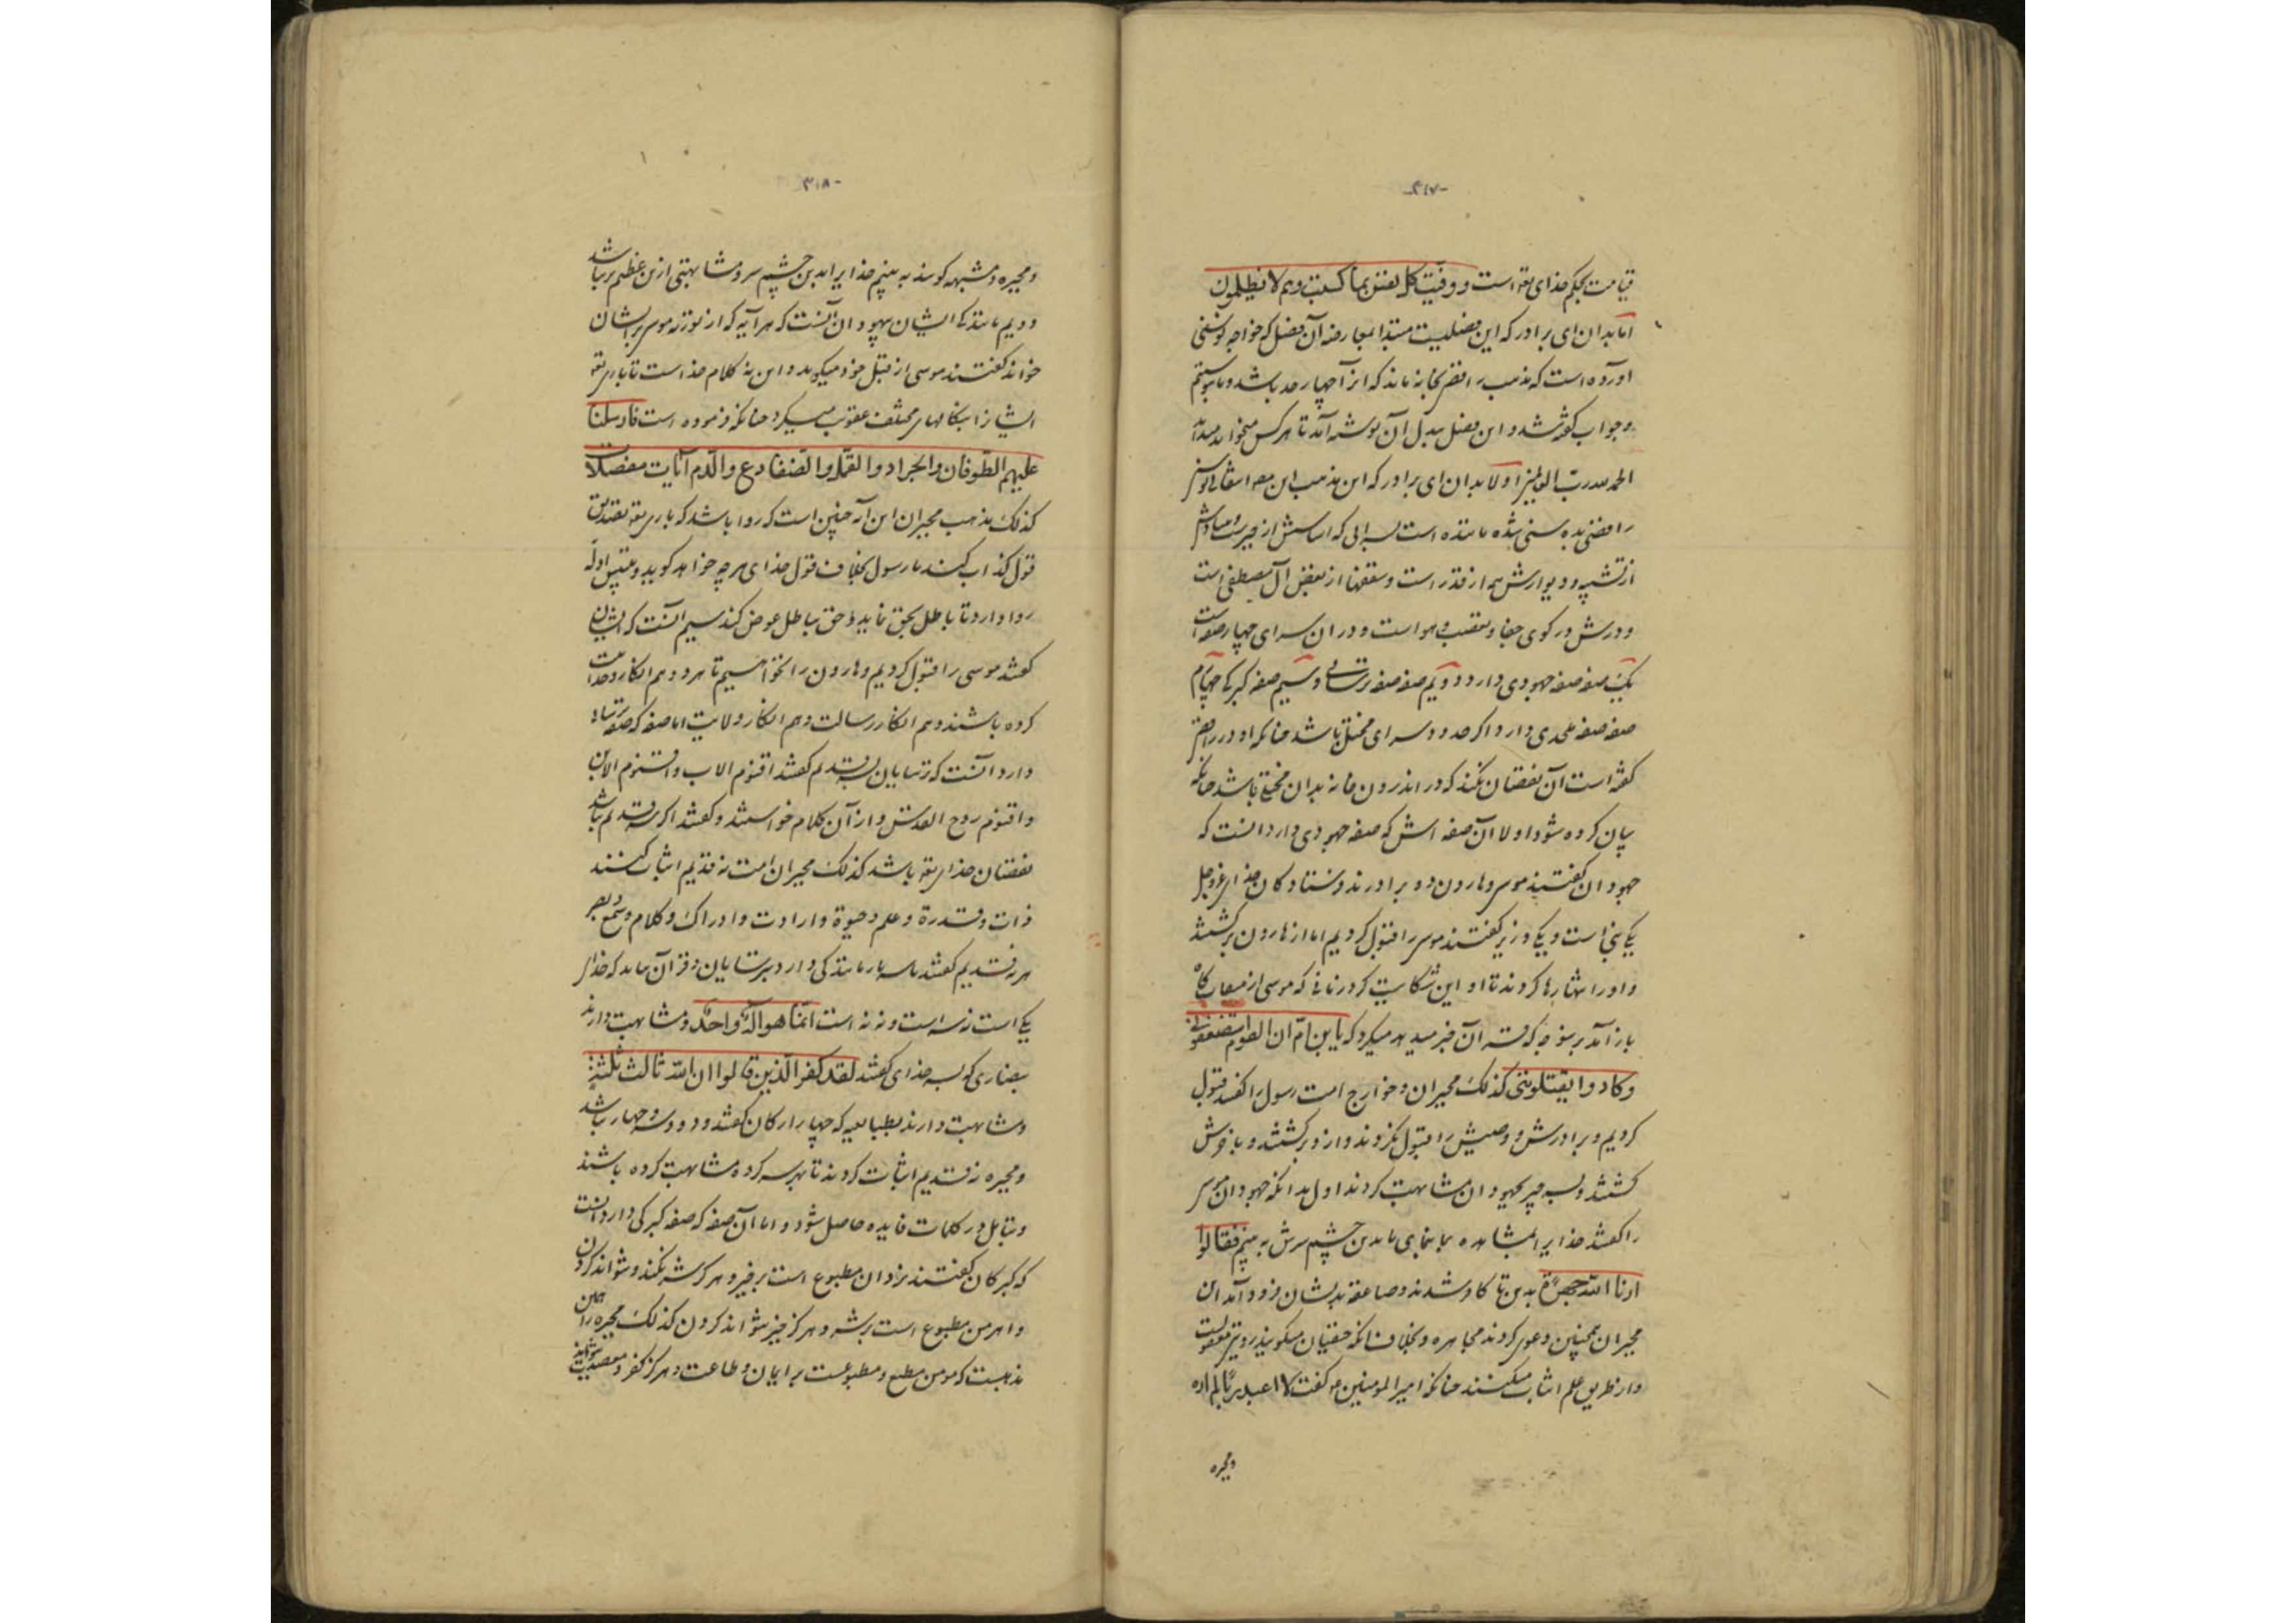 -۴۱۷-
قیامت بحکم خدای تعه است ووفیت کل نفس بما کسبت وهم لا یظلمون
اما بدان ای برادر که این فصلیست مبتدا بمعارضه آن فصل که خواجه نوسنی
آورده است که مذهب رافضی بخانه ماند که از آ چهار حد باشد وما بنوشتیم
وجواب گفته شد و این فصل ببدل آن نوشته آمد تا هر کس میخواند میداند
الحمد لله رب العالمین اولا بدان ای برادر که این مذهب این
رافضی بده سنی شده ماننده است بسرایی که اساسش از جبرست و بنیادش
از تشبیه و دیوارش هم از قدر است و سقفها از بغض آل مصطفی است
و درش در کوی جفا و تعصب و هوا است و در ان سرای چهار صفه است
یک صفه صفه جهودی دارد و دویم صفه صفه ترسائی وسیم صفه گبرکی چهارم
صفه صفه ملحدی دارد و اگر حدود سرای مختل باشد چنانکه او در رافضی
گفته است آن نقصان نکند که در اندرون خانه بدان محتاج باشد چنانکه
بیان کرده شود اولا آن صفه اش که صفه جهودی دارد آنست که
جهودان گفتند موسی وهارون دو برادرند فرستادگان خدای عز وجل
یکی نبی است و یکی وزیر گفتند موسی را قبول کردیم اما از هارون برگشتند
و اورا انتهارها کردند تا او این شکایت کرد در زمانی که موسی از میعادگاه
باز آمد برین وجه که قران خبر میدهد میکرد که یابن ام ان القوم استضعفونی
وکادوا یقتلوننی کذلک مجبران و خوارج امت رسول را گفتند قبول
کردیم و برادرش و وصیش را قبول نکردند و ازو برگشتند و بازفروش
گشتند و بسه چیز بجهودان مشابهت کردند اول بدانکه جهودان موسی
را گفتند خدایرا بمشاهده بما نمای تا بدین چشم سرش به بینیم فقالوا
ارنا الله جهرة بدین تا کافر شدند و صاعقه بدیشان فرود آمد این
مجبران همچنین دعوی کردند مجاهره و بخلاف آنکه حنفیان میگویند رویتی معقولست
و از طریق علم اثبات میکنند چنانکه امیر المومنین ع گفت لا اعبد ربا لم اره
ومجبره
-۴۱۸-
ومجبره و مشبهه گویند به بینیم خدایرا بدین چشم سر و مشابهتی ازین عظیمتر نباشد
دویم مانندگی ایشان بیهودان آنست که هر آیه که از توزیه موسی بر ایشان
خواند گفتند موسی از قبل خود میگوید و این نه کلام خدا است تا باری تعه
ایشانرا بنکالهای مختلف عقوبت میکرد چنانکه فرموده است فارسلنا
علیهم الطوفان والجراد والقمل والضفادع والدم آیات مفصلات
کذلک مذهب مجبران این آیه چنین است که روا باشد که باری تعه تصدیق
قول کذاب کند تا رسول بخلاف قول خدای هر چه خواهد گوید و تلبیس ادله
روا دارد تا باطل بحق نماید و حق بباطل عوض کند سیم آنست که ایشان
گفتند موسی را قبول کردیم و هارون را نخواهیم تا هردو هم انکار وحدانیت
کرده باشند وهم انکار رسالت و هم انکار ولایت اما صفه که صفه ترسایی
دارد آنست که ترسایان بسه قدیم گفتند اقنوم الاب و اقنوم الابن
و اقنوم روح القدس و از آن کلام خواستند و گفتند اگر سه قدیم نباشد
نقصان خدای تعه باشد کذلک مجبران امت نه قدیم اثبات کنند
ذات و قدرة و علم و حیوة و ارادت و ادراک و کلام و سمع و بصر
هر نه قدیم گفتند تا سه بار مانندگی دارد بترسایان و قرآن بیاید که خدای
یکی است نه سه است و نه نه است انما هو اله واحد و مشابهت دارند
بنصاری که بسه خدای گفتند لقد کفر الذین قالوا ان الله ثالث ثلثة
و مشابهت دارند بطبایعیه که چهار ارکان گفتند و دو و سه و چهار باشد
و مجبره نه قدیم اثبات کردند تا بهر سه گروه مشابهت کرده باشند
و بتأمل در کلمات فایده حاصل شود و اما آن صفه که صفه گبرکی دارد آنست
که گبرکان گفتند یزدان مطبوع است بر خیر و هرگز شر نکند و نتواند کردن
و اهرمن مطبوع است بر شر و هرگز خیر نتواند کردن کذلک مجبره را همین
مذهبست که مومن مطیع و مطبوعست بر ایمان و طاعت و هرگز کفر و معصیت نتواند